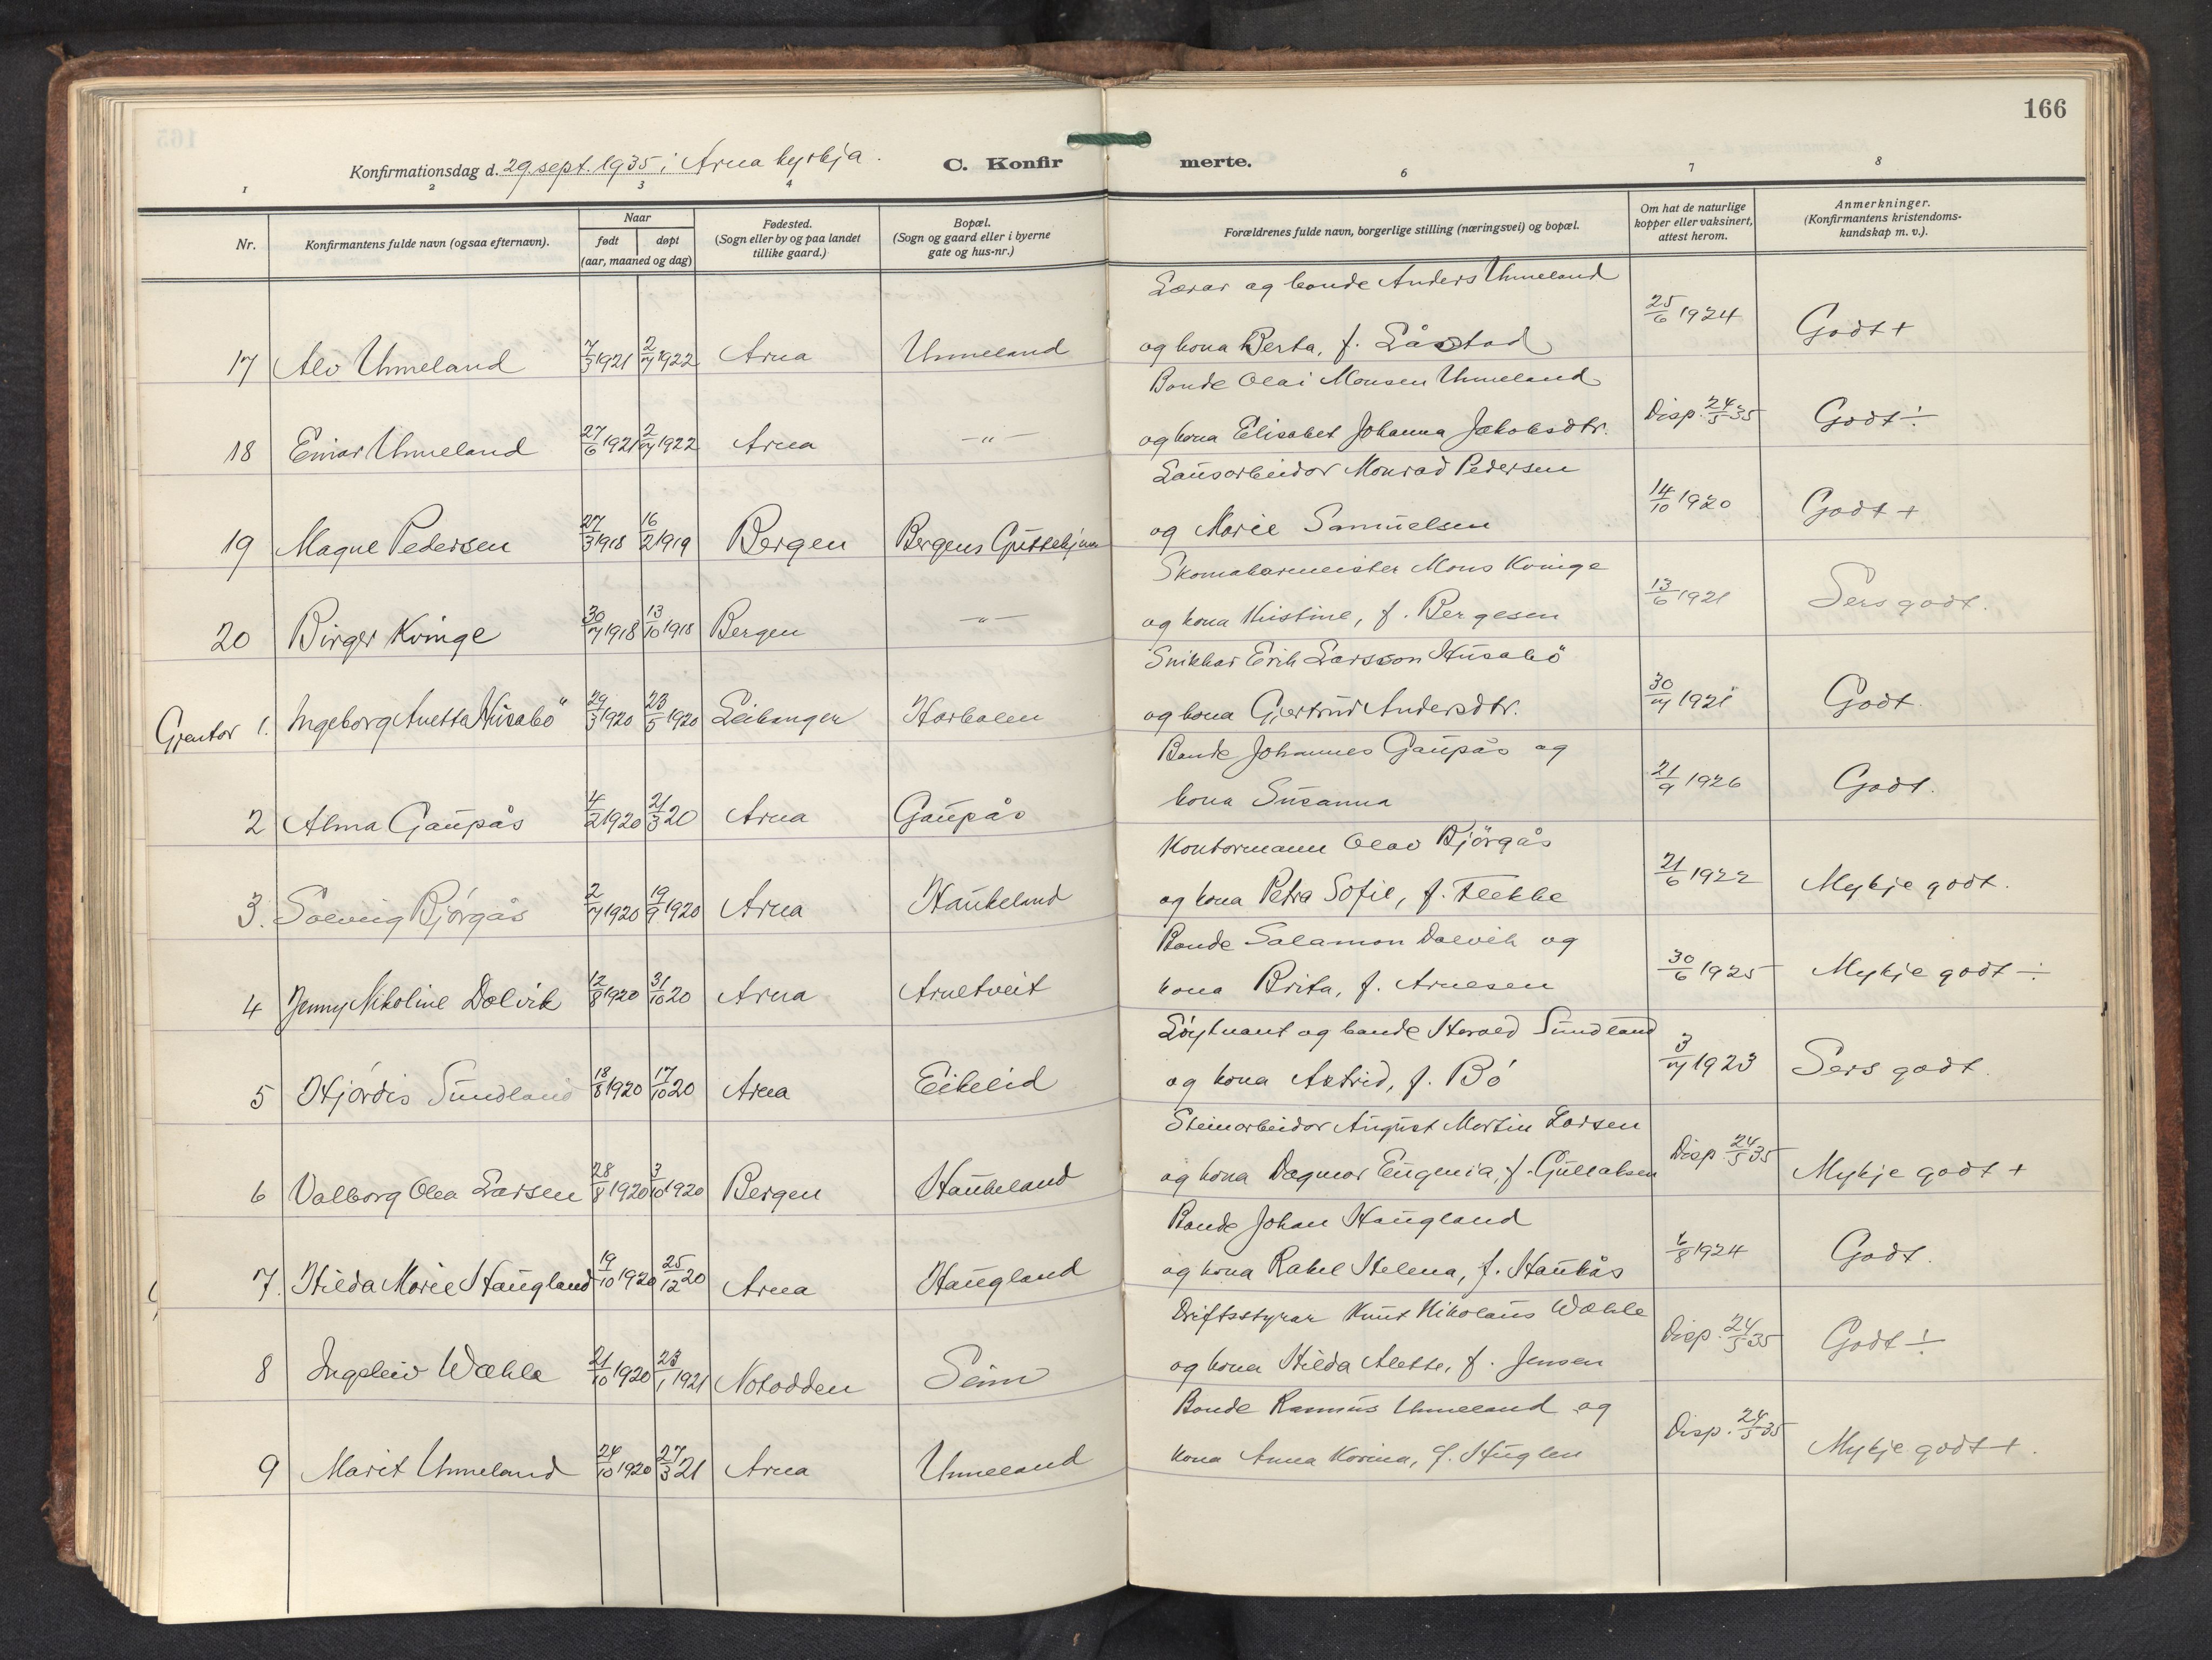 166
Konfirmationsdag d. 29. sept. 1935 i Arna kyrkja.
C. Konfirmerte.
1 2 3 4 6 7 8
Nr.
Konfirmantens fulde navn (ogsaa efternavn).
Naar
født døpt
(aar, maaned og dag)
Fødested.
(Sogn eller by og paa landet
tillike gaard.)
Bopæl.
(Sogn og gaard eller i byerne
gate og hus-nr.)
Forældrenes fulde navn, borgerlige stilling (næringsvei) og bopæl.
Om hat de naturlige
kopper eller vaksinert,
attest herom.
Anmerkninger.
(Konfirmantens kristendoms-
kundskap m. v.).
Lærar og bonde Anders Unneland
17 Alv Unneland 7/3 1921 2/7 1922 Arna Unneland og kona Berta, f. Låstad 25/6 1924 Godt +
Bonde Olai Monsen Unneland
18 Einar Unneland 27/6 1921 2/7 1922 Arna —"— og kona Elisabet Johanna Jakobsdtr. Disp. 24/5 35 Godt ÷
Lausarbeidar Monrad Pedersen
19 Magne Pedersen 27/3 1918 16/2 1919 Bergen Bergens og Marie Samuelsen 14/10 1920 Godt +
Skomakarmeister Mons Kvinge
20 Birger Kvinge 30/7 1918 13/10 1918 Bergen —"— og kona Kristine, f. Bergesen 13/6 1921 Sers godt.
Snikkar Erik Larsson Husabö
Gjentor 1. Ingeborg Anetta Husabö 29/3 1920 23/5 1920 Leikanger og kona Gjertrud Andersdtr. 30/7 1921 Godt.
Bonde Johannes Gaupås og
2 Alma Gaupås 4/2 1920 21/3 20 Arna Gaupås kona Susanna 21/9 1926 Godt.
Kontormann Olav Bjørgås
3. Solveig Bjørgås 2/7 1920 19/9 1920 Arna Haukeland og kona Petra Sofie, f. Flekke 21/6 1922 Mykje godt.
Bonde Salamon Dalvik og
4 Jenny Nikoline Dalvik 12/8 1920 31/10 20 Arna Arnetveit kona Brita, f. Arnesen 30/6 1925 Mykje godt ÷
Løytnant og bonde Harald Sundland
5 Hjørdis Sundland 18/8 1920 17/10 20 Arna Eikelid og kona Astrid, f. Bø 3/7 1923 Sers godt.
Steinarbeidar August Martin Larsen
6 Valborg Olea Larsen 28/8 1920 3/10 1920 Bergen Haukeland og kona Dagmar Eugenia, f. Gullaksen Disp. 24/5 35 Mykje godt +
Bonde Johan Haugland
7. Hilda Marie Haugland 19/10 1920 25/12 20 Arna Haugland og kona Rakel Helena, f. Haukås 6/8 1924 Godt.
Driftsstyrar Knut Nikolaus Wæhle
8 Ingeleiv Wæhle 21/10 1920 23/1 1921 Notodden Seim og kona Hilda Alette, f. Jensen Disp. 24/5 35 Godt ÷
Bonde Rasmus Unneland og
9 Marit Unneland 24/10 1920 27/3 21 Arna Unneland kona Anna Korina, f. Huglen Disp. 24/5 35 Mykje godt +.